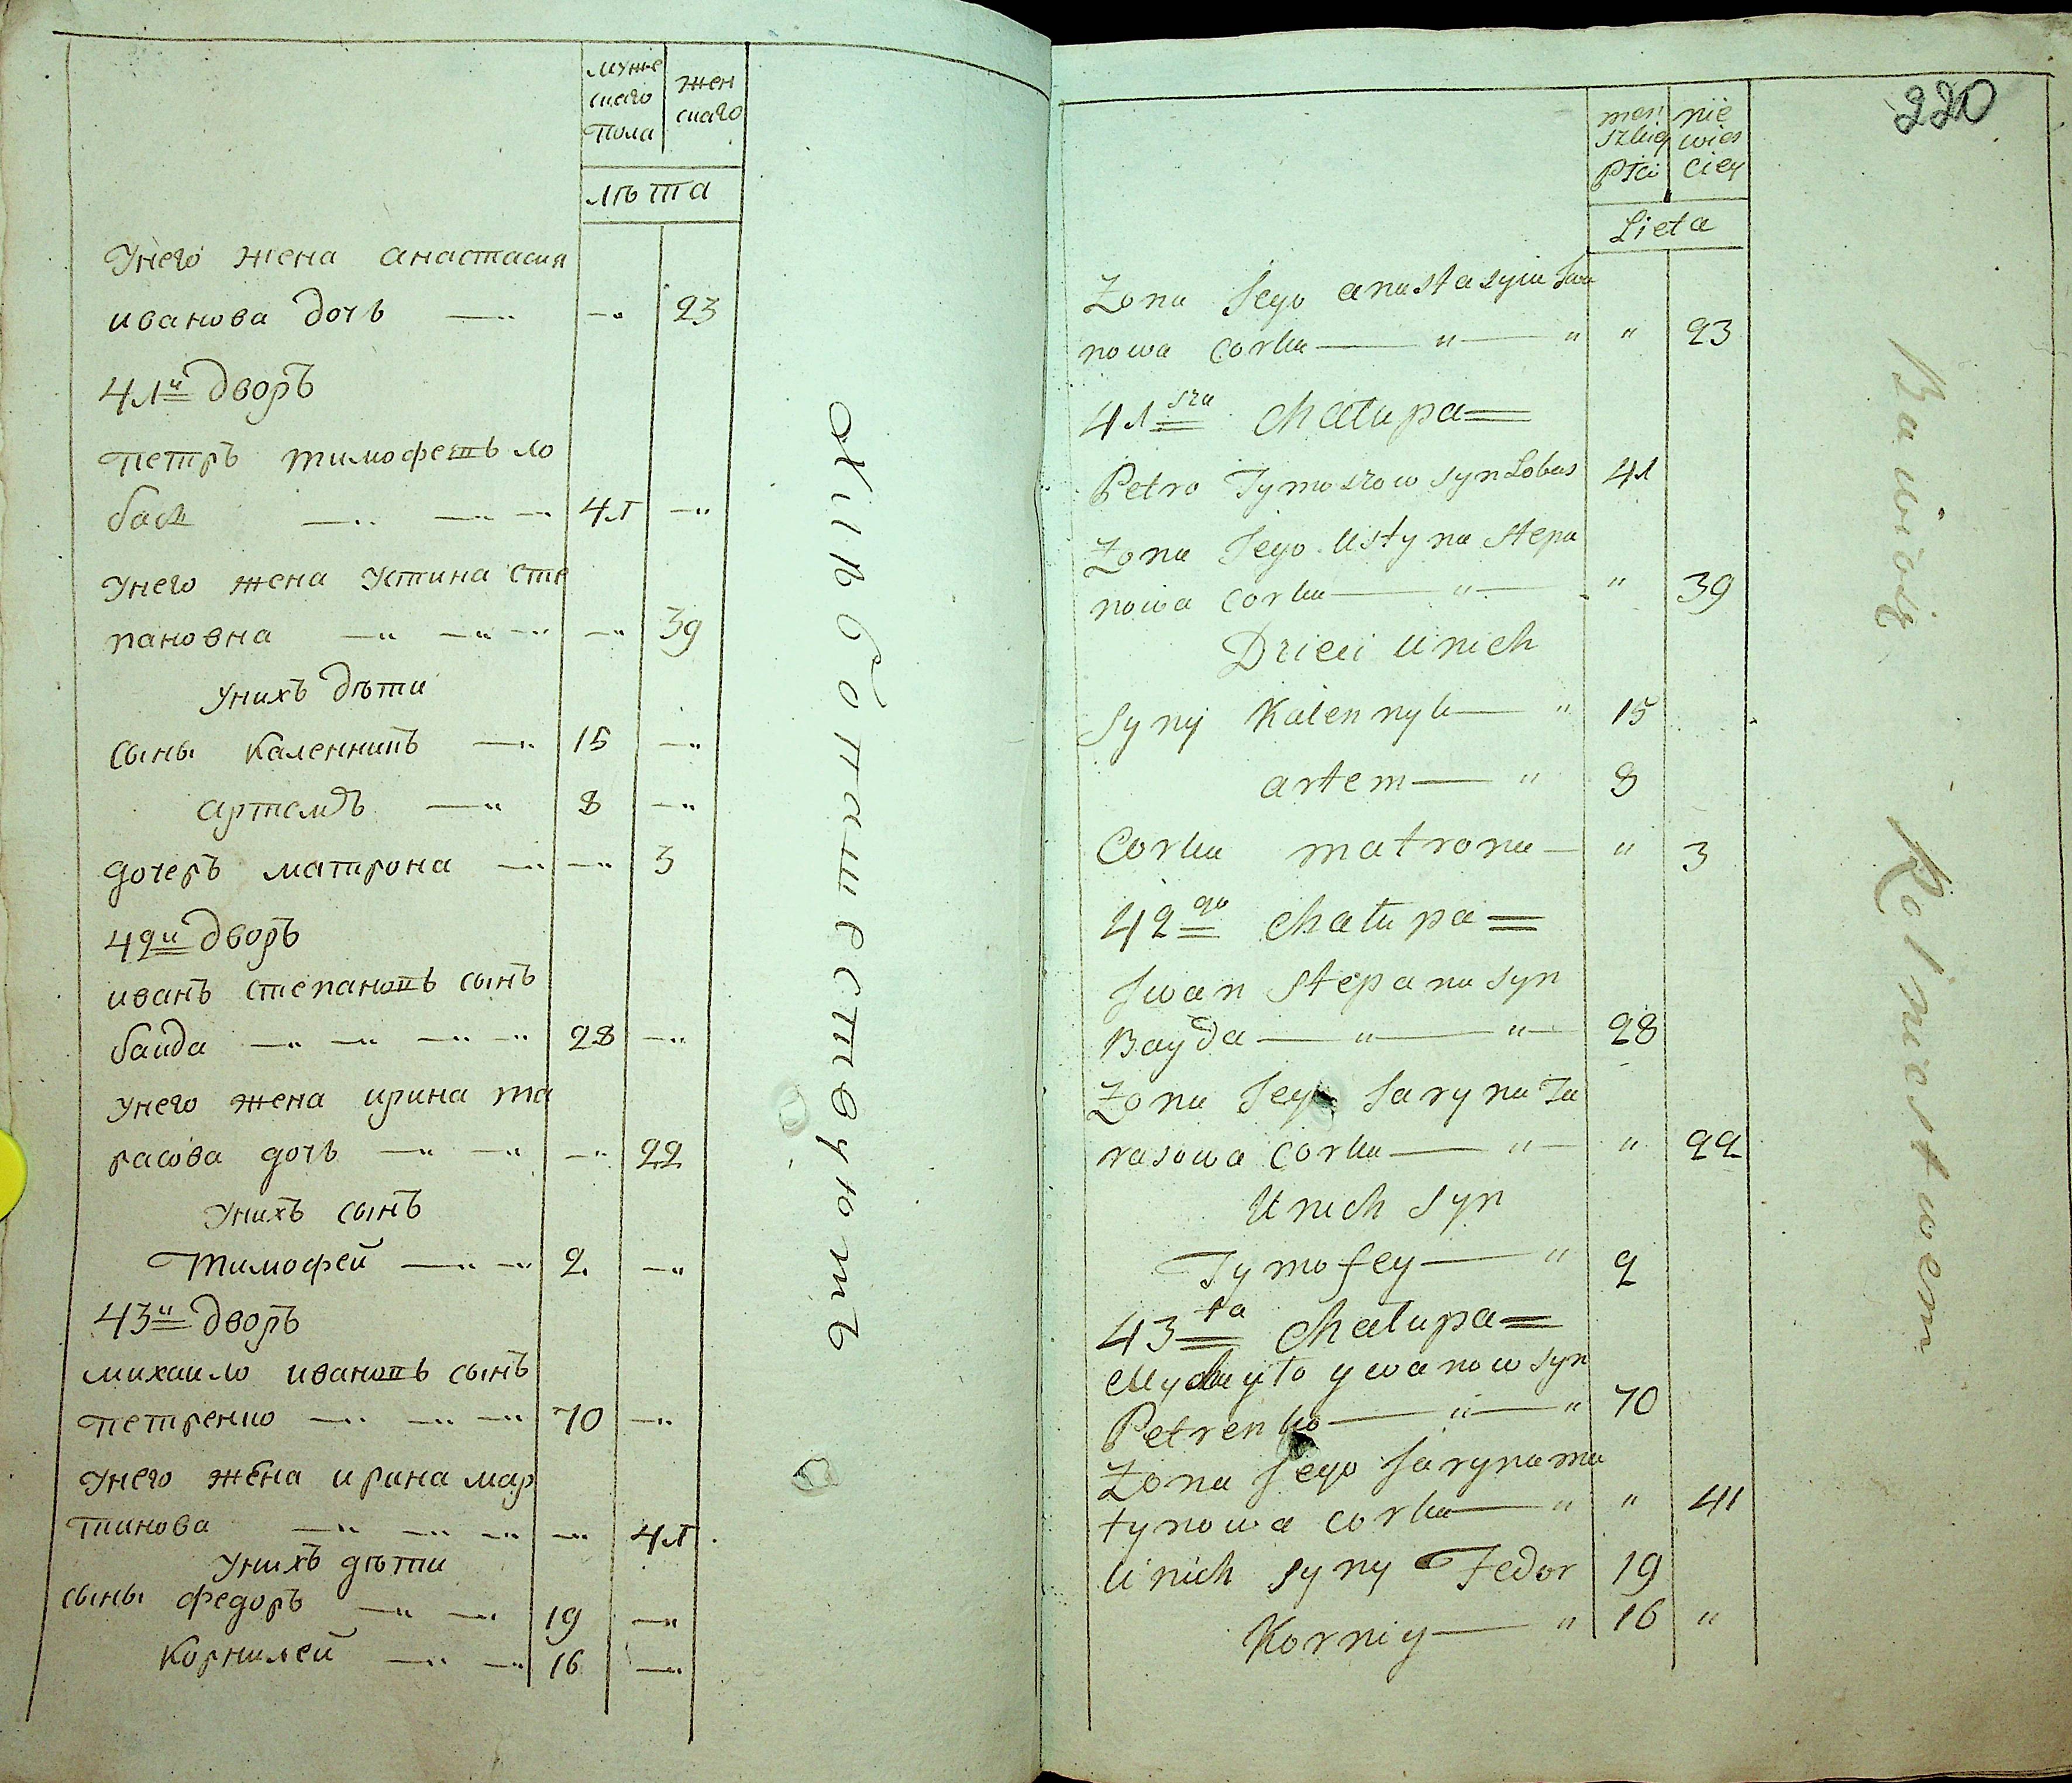 муже
скаго
пола
жен
скаго
лѣта
Унего жена анастасия
иванова дочь 23
41й дворъ
Петръ тимофеевъ ло
бас 41
Унего жена Устина Сте
пановна 39
Унихъ дѣти
Сыны Каленникъ 15
артемъ 8
дочеръ матрона 3
42й дворъ
иванъ степановъ сынъ
баида 28
Унего жена ирина та
расова дочь 22
Унихъ сынъ
Тимофей 2
43й дворъ
михаило ивановъ сынъ
петренко 70
Унего жена ирина мар
тинова 41
Унихъ дѣти
сыны федоръ 19
Корнилей 16
хлѣбопашествуютъ
220
męs
szkiey
Płci
nie
wies
ciey
Lieta
Zona Jego anastasyia Iwa
nowa corka " " " 23
41sza chałupa
Petro Tymoszow syn Lobas 41
Zona Jego Ustyna Stepa
nowa corka " " 39
Dzieci u nich
Syny Kalennyk " 15
artem " 8
Corka matrona " 3
42ga chałupa
Iwan Stepana syn
Bayda " " 28
Zona Jego Jaryna Ta
rasowa corka " " 22
U nich syn
Tymofey " 2
43ta chałupa
Mychayło ywanow syn
Petrenko " " 70
Zona Jego Jaryna ma
tynowa corka " " 41
U nich syny Fedor 19
Korniy " 16 "
Bawiosię Rolnictwem